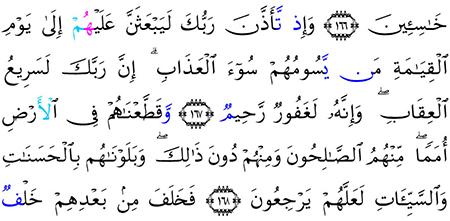 خَـٰسِـِٔينَ ﴿١٦٦﴾ وَإِذ تَّأَذَّنَ رَبُّكَ لَيَبْعَثَنَّ عَلَيْهُمْ إِلَىٰ يَوْمِ
الْقِيَـٰمَةِ مَن يَّسُومُهُمْ سُوٓءَ الْعَذَابِ ۗ إِنَّ رَبَّكَ لَسَرِيعُ
الْعِقَابِ ۖ وَإِنَّهُۥ لَغَفُورٌ رَّحِيمٌ ﴿١٦٧﴾ وَّقَطَّعْنَـٰهُمْ فِى الْأَرْضِ
أُمَمًا ۖ مِّنْهُمُ الصَّـٰلِحُونَ وَمِنْهُمْ دُونَ ذَٰلِكَ ۖ وَبَلَوْنَـٰهُم بِالْحَسَنَـٰتِ
وَالسَّيِّـَٔاتِ لَعَلَّهُمْ يَرْجِعُونَ ﴿١٦٨﴾ فَخَلَفَ مِنۢ بَعْدِهِمْ خَلْفٌ